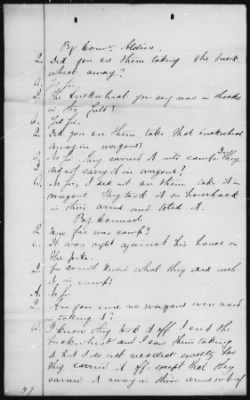 By Comr. Aldis.
Q. Did you see them taking the buck
wheat away?
A. Yes Sir.
Q. The buckwheat you say was in shocks
in the field?
A. Yes Sir.
Q. Did you see them take that buckwheat
away in wagons?
A. No Sir. They carried it into camp. They
did not carry it in wagons?
A. No Sir, I did not see them take it in
wagons. They took it on horseback
in their arms and toted it.
By Counsel
Q. How far was camp?
A. It was right against his house on
the pike.
Q. You dont know what they did with
it in camp?
A. No Sir.
Q. Are you sure no wagons were used
in taking it?
A. I know they took it off. I cut the
buckwheat and I saw them taking
it but I do not recollect exactly how
they carried it off except that they
carried it away in their arms on top